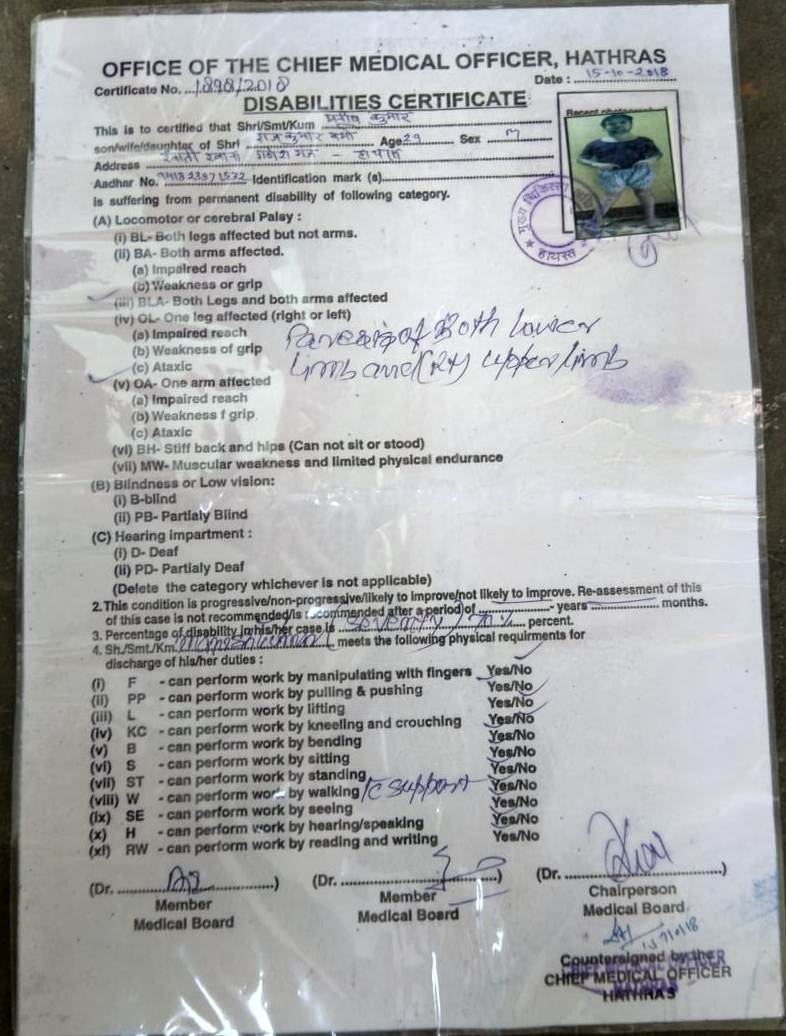 OFFICE OF THE CHIEF MEDICAL OFFICER, HATHRAS
Certificate No. ...1898/2018
Date : 15-10-2018
DISABILITIES CERTIFICATE
This is to certified that Shri/Smt/Kum कुमार
son/wife/daughter of Shri राजकुमार वर्मा Age 29 Sex M
Address
Aadhar No. Identification mark (s)
is suffering from permanent disability of following category.
(A) Locomotor or cerebral Palsy :
(i) BL- Both legs affected but not arms.
(ii) BA- Both arms affected.
(a) Impaired reach
(b) Weakness or grip
(iii) BLA- Both Legs and both arms affected
(iv) OL- One leg affected (right or left)
(a) Impaired reach
(b) Weakness of grip
(c) Ataxic
Paresis of Both lower
limb and (Rt) upper limb
(v) OA- One arm affected
(a) Impaired reach
(b) Weakness f grip
(c) Ataxic
(vi) BH- Stiff back and hips (Can not sit or stood)
(vii) MW- Muscular weakness and limited physical endurance
(B) Blindness or Low vision:
(i) B-blind
(ii) PB- Partialy Blind
(C) Hearing impartment :
(i) D- Deaf
(ii) PD- Partialy Deaf
(Delete the category whichever is not applicable)
2. This condition is progressive/non-progressive/likely to improve/not likely to improve. Re-assessment of this
of this case is not recommended/is recommended after a period)of - years months.
3. Percentage of disability in his/her case is (seventy) 70% percent.
4. Sh./Smt./Km. meets the following physical requirments for
discharge of his/her duties :
(i) F - can perform work by manipulating with fingers Yes/No
(ii) PP - can perform work by pulling & pushing Yes/No
(iii) L - can perform work by lifting Yes/No
(iv) KC - can perform work by kneeling and crouching Yes/No
(v) B - can perform work by bending Yes/No
(vi) S - can perform work by sitting Yes/No
(vii) ST - can perform work by standing Yes/No
(viii) W - can perform work by walking /c support Yes/No
(ix) SE - can perform work by seeing Yes/No
(x) H - can perform work by hearing/speaking Yes/No
(xi) RW - can perform work by reading and writing Yes/No
(Dr. ) (Dr. ) (Dr. )
Member Member Chairperson
Medical Board Medical Board Medical Board
Countersigned by the
CHIEF MEDICAL OFFICER
HATHRAS